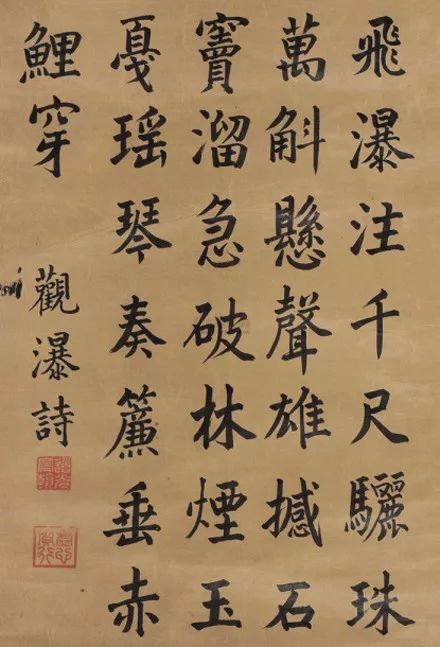 飛瀑注千尺驪珠
萬斛懸聲雄撼石
竇溜急破林煙玉
戞瑤琴奏簾垂赤
鯉穿
觀瀑詩